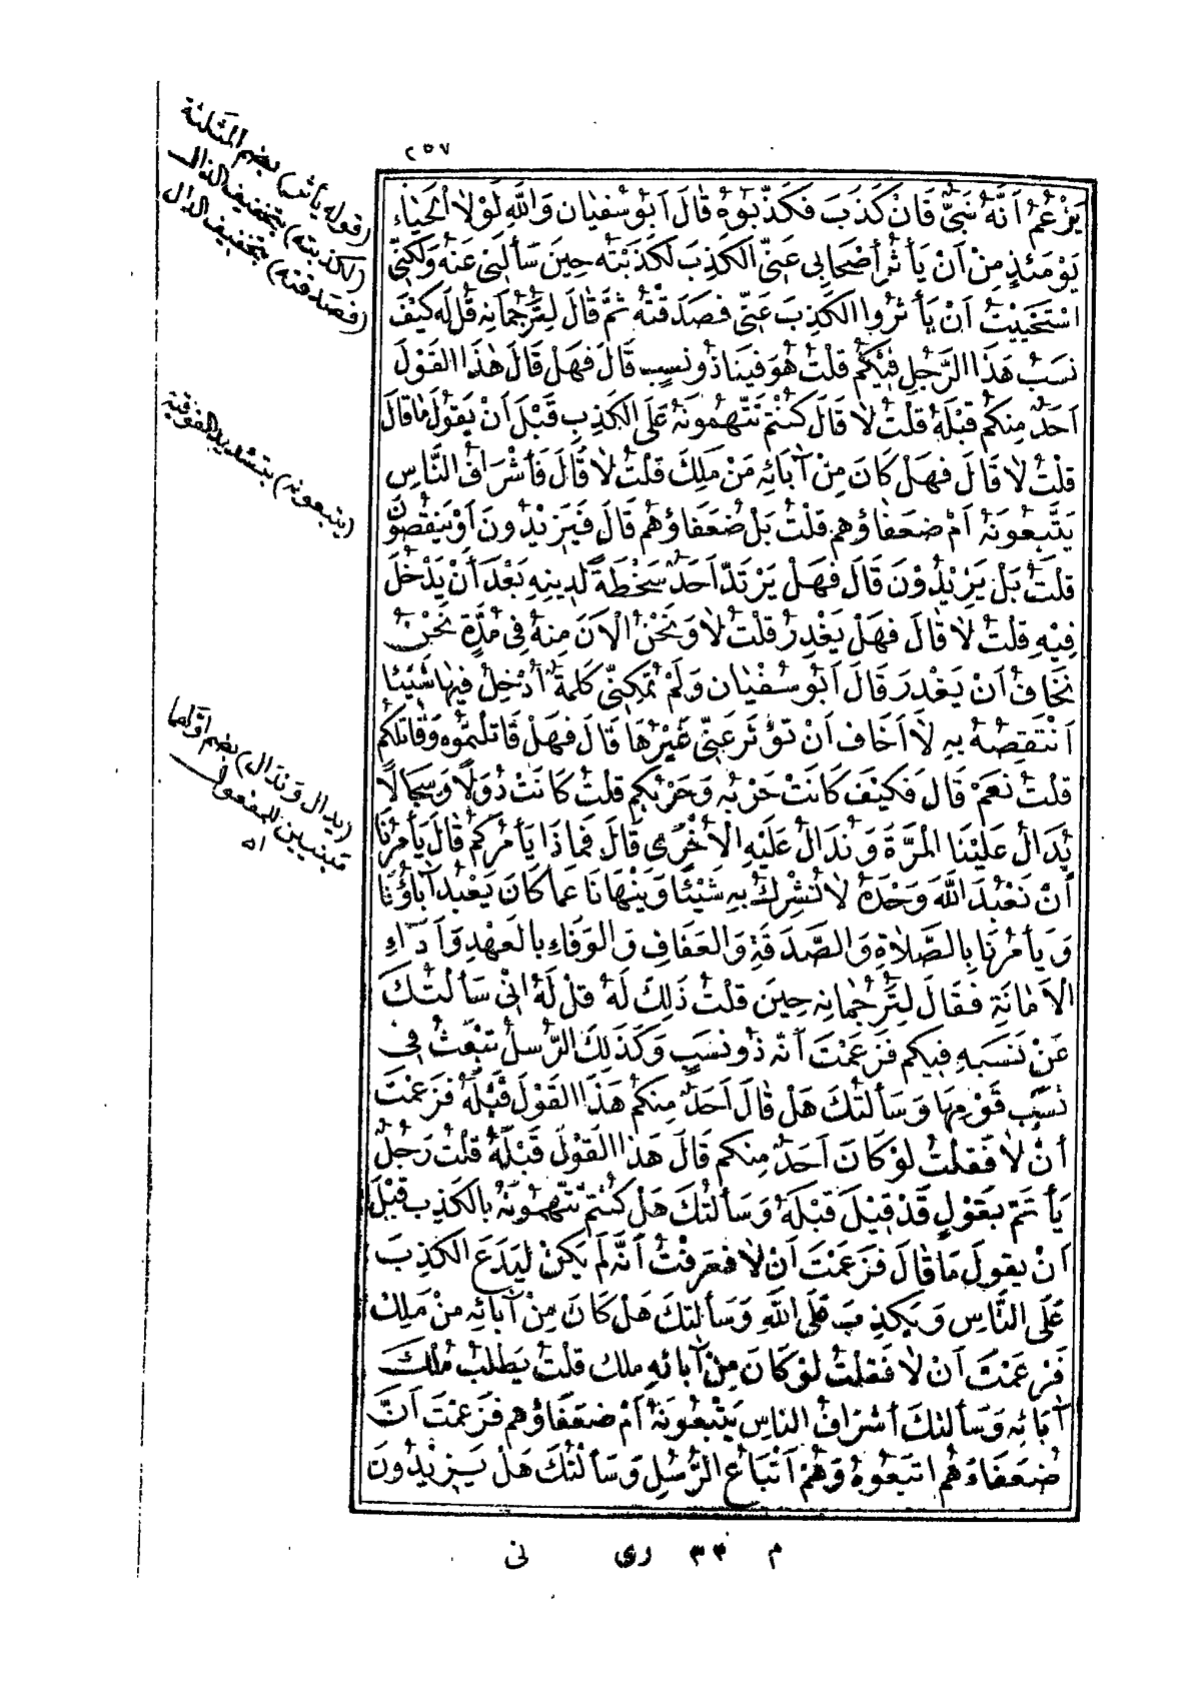 ٢٥٧
يَزْعُمُ أَنَّهُ نَبِيٌّ فَإِنْ كَذَبَ فَكَذِّبُوهُ قَالَ أَبُو سُفْيَان وَاللَّهِ لَوْلَا الْحَيَاءُ
يَوْمَئِذٍ مِنْ أَنْ يَأْثُرَ أَصْحَابِي عَنِّي الْكَذِبَ لَكَذَبْتُهُ حِينَ سَأَلَنِي عَنْهُ وَلَكِنِّي
اسْتَحْيَيْتُ أَنْ يَأْثُرُوا الْكَذِبَ عَنِّي فَصَدَقْتُهُ ثُمَّ قَالَ لِتُرْجُمَانِهِ قُلْ لَهُ كَيْفَ
نَسَبُ هَذَا الرَّجُلِ فِيكُمْ قُلْتُ هُوَ فِينَا ذُو نَسَبٍ قَالَ فَهَلْ قَالَ هَذَا الْقَوْلَ
أَحَدٌ مِنْكُمْ قَبْلَهُ قُلْتُ لَا قَالَ كُنْتُمْ تَتَّهِمُونَهُ عَلَى الْكَذِبِ قَبْلَ أَنْ يَقُولَ مَا قَالَ
قُلْتُ لَا قَالَ فَهَلْ كَانَ مِنْ آبَائِهِ مَنْ مَلِكَ قُلْتُ لَا قَالَ فَأَشْرَافُ النَّاسِ
يَتَّبِعُونَهُ أَمْ ضُعَفَاؤُهُمْ قُلْتُ بَلْ ضُعَفَاؤُهُمْ قَالَ فَيَزِيدُونَ أَوْ يَنْقُصُونَ
قُلْتُ بَلْ يَزِيدُونَ قَالَ فَهَلْ يَرْتَدُّ أَحَدٌ سَخْطَةً لِدِينِهِ بَعْدَ أَنْ يَدْخُلَ
فِيهِ قُلْتُ لَا قَالَ فَهَلْ يَغْدِرُ قُلْتُ لَا وَنَحْنُ الْآنَ مِنْهُ فِي مُدَّةٍ نَحْنُ
نَخَافُ أَنْ يَغْدِرَ قَالَ أَبُو سُفْيَان وَلَمْ تُمْكِنِّي كَلِمَةٌ أُدْخِلُ فِيهَا شَيْئًا
أَنْتَقِصُهُ بِهِ لَا أَخَافُ أَنْ تُؤْثَرَ عَنِّي غَيْرُهَا قَالَ فَهَلْ قَاتَلْتُمُوهُ وَقَاتَلَكُمْ
قُلْتُ نَعَمْ قَالَ فَكَيْفَ كَانَتْ حَرْبُهُ وَحَرْبُكُمْ قُلْتُ كَانَتْ دُوَلًا وَسِجَالًا
يُدَالُ عَلَيْنَا الْمَرَّةَ وَنُدَالُ عَلَيْهِ الْأُخْرَى قَالَ فَمَاذَا يَأْمُرُكُمْ قَالَ يَأْمُرُنَا
أَنْ نَعْبُدَ اللَّهَ وَحْدَهُ لَا نُشْرِكُ بِهِ شَيْئًا وَيَنْهَانَا عَمَّا كَانَ يَعْبُدُ آبَاؤُنَا
وَيَأْمُرُنَا بِالصَّلَاةِ وَالصَّدَقَةِ وَالْعَفَافِ وَالْوَفَاءِ بِالْعَهْدِ وَأَدَاءِ
الْأَمَانَةِ فَقَالَ لِتُرْجُمَانِهِ حِينَ قُلْتُ ذَلِكَ لَهُ قُلْ لَهُ إِنِّي سَأَلْتُكَ
عَنْ نَسَبِهِ فِيكُمْ فَزَعَمْتَ أَنَّهُ ذُو نَسَبٍ وَكَذَلِكَ الرُّسُلُ تُبْعَثُ فِي
نَسَبِ قَوْمِهَا وَسَأَلْتُكَ هَلْ قَالَ أَحَدٌ مِنْكُمْ هَذَا الْقَوْلَ قَبْلَهُ فَزَعَمْتَ
أَنْ لَا فَقُلْتُ لَوْ كَانَ أَحَدٌ مِنْكُمْ قَالَ هَذَا الْقَوْلَ قَبْلَهُ قُلْتُ رَجُلٌ
يَأْتَمُّ بِقَوْلٍ قَدْ قِيلَ قَبْلَهُ وَسَأَلْتُكَ هَلْ كُنْتُمْ تَتَّهِمُونَهُ بِالْكَذِبِ قَبْلَ
أَنْ يَقُولَ مَا قَالَ فَزَعَمْتَ أَنْ لَا فَعَرَفْتُ أَنَّهُ لَمْ يَكُنْ لِيَدَعَ الْكَذِبَ
عَلَى النَّاسِ وَيَكْذِبَ عَلَى اللَّهِ وَسَأَلْتُكَ هَلْ كَانَ مِنْ آبَائِهِ مِنْ مَلِكٍ
فَزَعَمْتَ أَنْ لَا فَقُلْتُ لَوْ كَانَ مِنْ آبَائِهِ مَلِكٌ قُلْتُ يَطْلُبُ مُلْكَ
آبَائِهِ وَسَأَلْتُكَ أَشْرَافُ النَّاسِ يَتَّبِعُونَهُ أَمْ ضُعَفَاؤُهُمْ فَزَعَمْتَ أَنَّ
ضُعَفَاءَهُمُ اتَّبَعُوهُ وَهُمْ أَتْبَاعُ الرُّسُلِ وَسَأَلْتُكَ هَلْ يَزِيدُونَ
(قوله يأثر) بضم المثلثة
(لكذبته) بتخفيف الذال
(فصدقته) بتخفيف الدال
(يتبعونه) بتشديد الفوقية
(يدال وندال) بضم أولهما
مبنيين للمفعول
اه
م ٣٣ رى نى